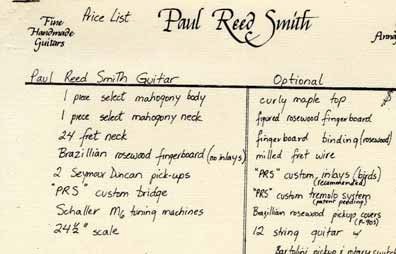 Fine
Handmade
Guitars
Price List
Paul Reed Smith
Anna
Paul Reed Smith Guitar
1 piece select mahogony body
1 piece select mahogony neck
24 fret neck
Brazillian rosewood fingerboard (no inlays)
2 Seymour Duncan pick-ups
"PRS" custom bridge
Schaller M6 tuning machines
24½" scale
Optional
curly maple top $
figured rosewood fingerboard
fingerboard binding (rosewood)
milled fret wire
"PRS" custom inlays (birds)
(recommended)
"PRS" custom tremolo system
(patent pending)
Brazillian rosewood pickup covers
(P-90s)
12 string guitar w/
Bartolini pickup & rotary switch